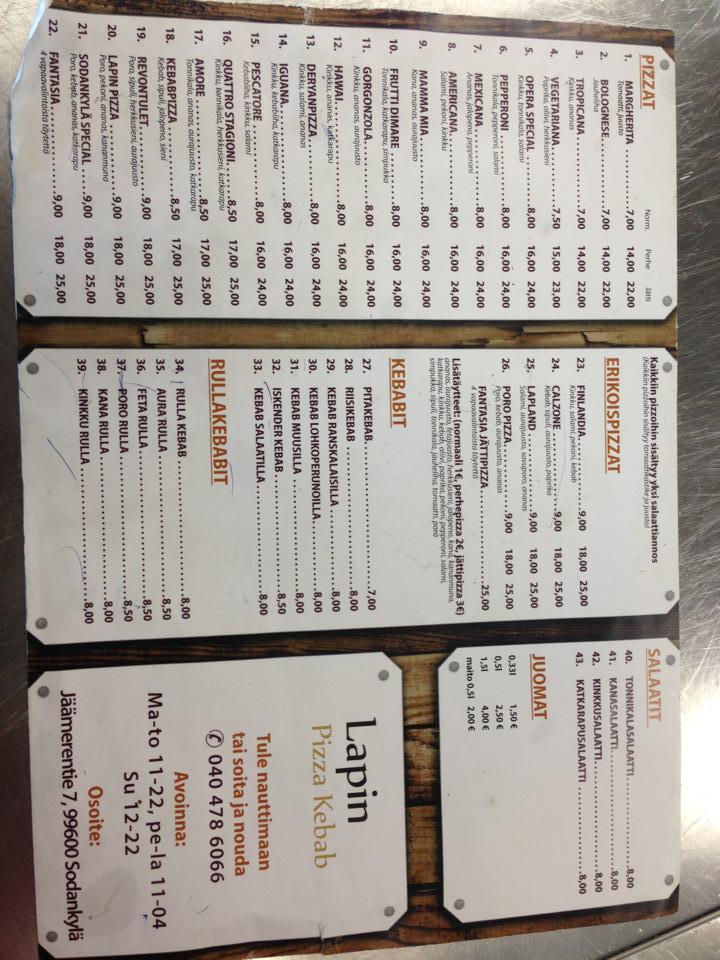 PIZZAT
Norm. Perhe Jätti
1. MARGHERITA 7,00 14,00 22,00
Tomaatti, juusto
2. BOLOGNESE 7,00 14,00 22,00
Jauheliha
3. TROPICANA 7,00 14,00 22,00
Kinkku, ananas
4. VEGETARIANA 7,50 15,00 23,00
Paprika, oliivi, herkkusieni
5. OPERA SPECIAL 8,00 16,00 24,00
Kinkku, tonnikala, salami
6. PEPPERONI 8,00 16,00 24,00
Tonnikala, pepperoni, salami
7. MEXICANA 8,00 16,00 24,00
Ananas, jalopeno, pepperoni
8. AMERICANA 8,00 16,00 24,00
Salami, pekoni, kinkku
9. MAMMA MIA 8,00 16,00 24,00
Kana, ananas, aurajuusto
10. FRUTTI DIMARE 8,00 16,00 24,00
Tonnikala, katkarapu, simpukka
11. GORGONZOLA 8,00 16,00 24,00
Kinkku, ananas, aurajuusto
12. HAWAI 8,00 16,00 24,00
Kinkku, ananas, katkarapu
13. DERYANPIZZA 8,00 16,00 24,00
Kinkku, salami, ananas
14. IGUANA 8,00 16,00 24,00
Kinkku, kebabliha, katkarapu
15. PESCATORE 8,00 16,00 24,00
Kebabliha, kinkku, salami
16. QUATTRO STAGIONI 8,50 17,00 25,00
Kinkku, tonnikala, herkkusieni, katkarapu
17. AMORE 8,50 17,00 25,00
Tonnikala, ananas, aurajuusto, katkarapu
18. KEBABPIZZA 8,50 17,00 25,00
Kebab, sipuli, jalopeno, sieni
19. REVONTULET 9,00 18,00 25,00
Poro, sipuli, herkkusieni, aurajuusto
20. LAPIN PIZZA 9,00 18,00 25,00
Poro, pekoni, ananas, kananmuna
21. SODANKYLÄ SPECIAL 9,00 18,00 25,00
Poro, kebab, ananas, katkarapu
22. FANTASIA 9,00 18,00 25,00
4 vapaavalintaista täytettä
Kaikkiin pizzoihin sisältyy yksi salaattiannos
(Kaikkiin pizzoihin sisältyy tomaattikastike ja juusto)
ERIKOISPIZZAT
23. FINLANDIA 9,00 18,00 25,00
Kinkku, salami, pekoni, kebab
24. CALZONE 9,00 18,00 25,00
Kebab, sipuli, aurajuusto, paprika
25. LAPLAND 9,00 18,00 25,00
Salami, aurajuusto, savuporo, ananas
26. PORO PIZZA 9,00 18,00 25,00
Poro, kebab, aurajuusto, ananas
FANTASIA JÄTTIPIZZA 25,00
4 vapaavalintaista täytettä
Lisätäytteet: (normaali 1€, perhepizza 2€, jättipizza 3€)
ananas, aurajuusto, fetajuusto, herkkusieni, jalopeno, kana, kananmuna,
katkarapu, kinkku, kebab, oliivi, paprika, pekoni, pepperoni, salami,
simpukka, sipuli, tonnikala, jauheliha, tomaatti, poro
KEBABIT
27. PITAKEBAB 7,00
28. RIISIKEBAB 8,00
29. KEBAB RANSKALAISILLA 8,00
30. KEBAB LOHKOPERUNOILLA 8,00
31. KEBAB MUUSILLA 8,00
32. ISKENDER KEBAB 8,50
33. KEBAB SALAATILLA 8,00
RULLAKEBABIT
34. RULLA KEBAB 8,00
35. AURA RULLA 8,50
36. FETA RULLA 8,50
37. PORO RULLA 8,50
38. KANA RULLA 8,00
39. KINKKU RULLA 8,00
SALAATIT
40. TONNIKALASALAATTI 8,00
41. KANASALAATTI 8,00
42. KINKKUSALAATTI 8,00
43. KATKARAPUSALAATTI 8,00
JUOMAT
0,33l 1,50 €
0,5l 2,50 €
1,5l 4,00 €
maito 0,5l 2,00 €
Lapin
Pizza Kebab
Tule nauttimaan
tai soita ja nouda
✆ 040 478 6066
Avoinna:
Ma-to 11-22, pe-la 11-04
Su 12-22
Osoite:
Jäämerentie 7, 99600 Sodankylä